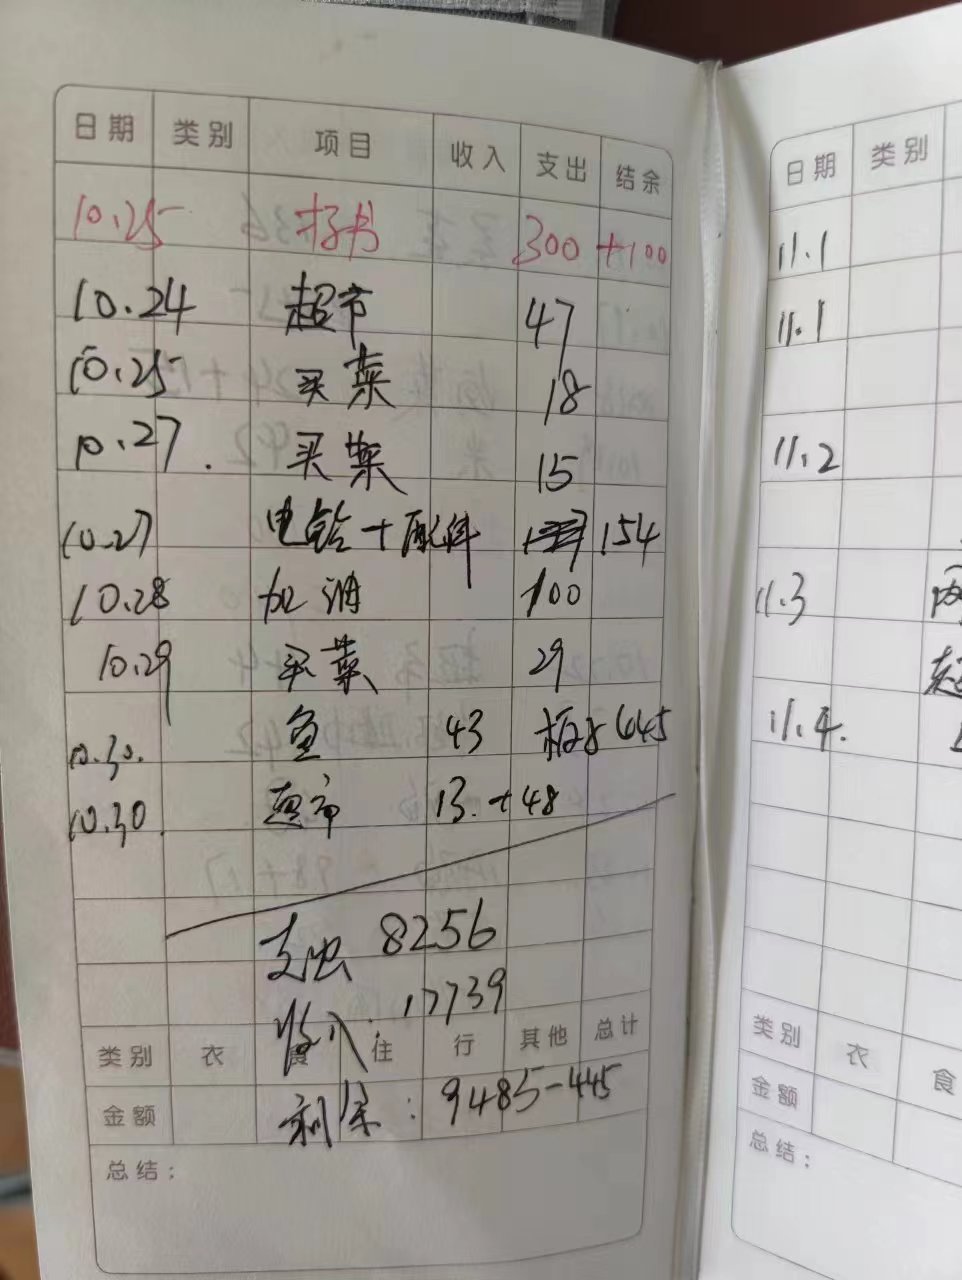 日期 类别 项目 收入 支出 结余
10.25 300 +100
10.24 超市 47
10.25 买菜 18
10.27. 买菜 15
10.27 +配件 154
10.28 加油 100
10.29 买菜 29
10.30. 鱼 43 板子
10.30 超市 13.+48
支出 8256
收入. 17739
类别 衣 住 行 其他 总计
: 9485-445
金额
总结:
日期 类别
11.1
11.1
11.2
11.3
11.4.
类别 衣 食
金额
总结: